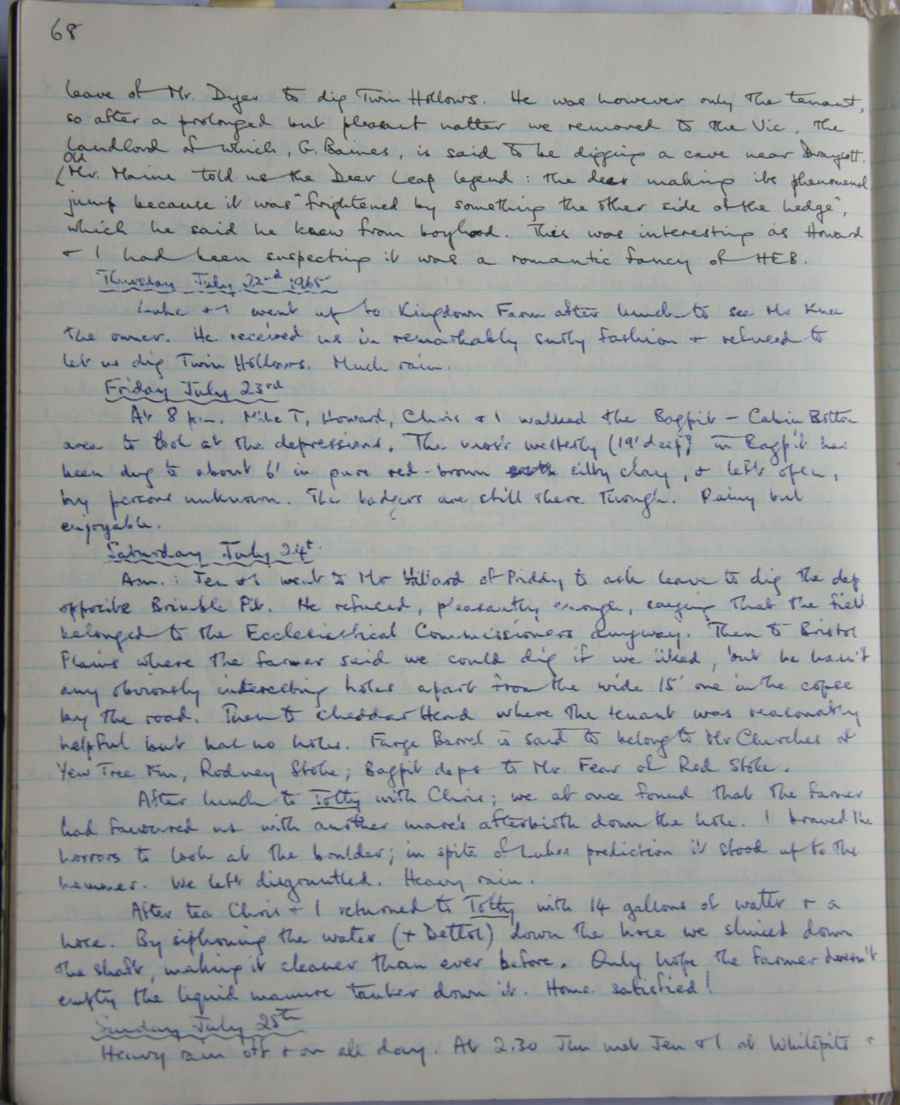 68
leave of Mr. Dyer to dig Twin Hollows. He was however only the tenant,
so after a prolonged but pleasant natter we removed to the Vic. The
landlord of which, G. Baines, is said to be digging a cave near Draycott.
Old
Mr. Maine told us the Deer Leap legend: the deer making its phenomenal
jump because it was "frightened by something the other side of the hedge",
which he said he knew from boyhood. This was interesting as Howard
+ I had been suspecting it was a romantic fancy of HEB.
Thursday July 22nd 1965
Luke + I went up to Kingdown Farm after lunch to see Mr
the owner. He received us in remarkably surly fashion + refused to
let us dig Twin Hollows. Much rain.
Friday July 23rd
At 8 p.m. Mike T, Howard, Chris + I walked the Bagpit - Cabin Bottom
area to look at the depressions. The most westerly (19' deep) in Bagpit has
been dug to about 6' in pure red-brown silty clay, + left open,
by persons unknown. The badgers are still there though. Rainy but
enjoyable.
Saturday July 24th
Am.: Jen + I went to Mr Hillard of Priddy to ask leave to dig the dep
opposite Brimble Pit. He refused, pleasantly enough, saying that the field
belonged to the Ecclesiastical Commissioners anyway. Then to Bristol
Plains where the farmer said we could dig if we liked, but he hasn't
any obviously interesting holes apart from the wide 15' one in the copse
by the road. Then to Cheddar Head where the tenant was reasonably
helpful but had no holes. Furge Barrel is said to belong to Mr Churches at
Yew Tree Fm, Rodney Stoke; Bagpit deps to Mr. Fear of Rod Stoke.
After lunch to Totty with Chris; we at once found that the farmer
had favoured us with another mare's afterbirth down the hole. I braved the
horrors to look at the boulder; in spite of Lukes prediction it stood up to the
hammer. We left disgruntled. Heavy rain.
After tea Chris + I returned to Totty with 14 gallons of water + a
hose. By siphoning the water (+ Dettol) down the hose we sluiced down
the shaft, making it cleaner than ever before. Only hope the farmer doesn't
empty the liquid manure tanker down it. Home satisfied!
Sunday July 25th
Heavy rain off + on all day. At 2.30 Jim met Jen + I at Whitepits +